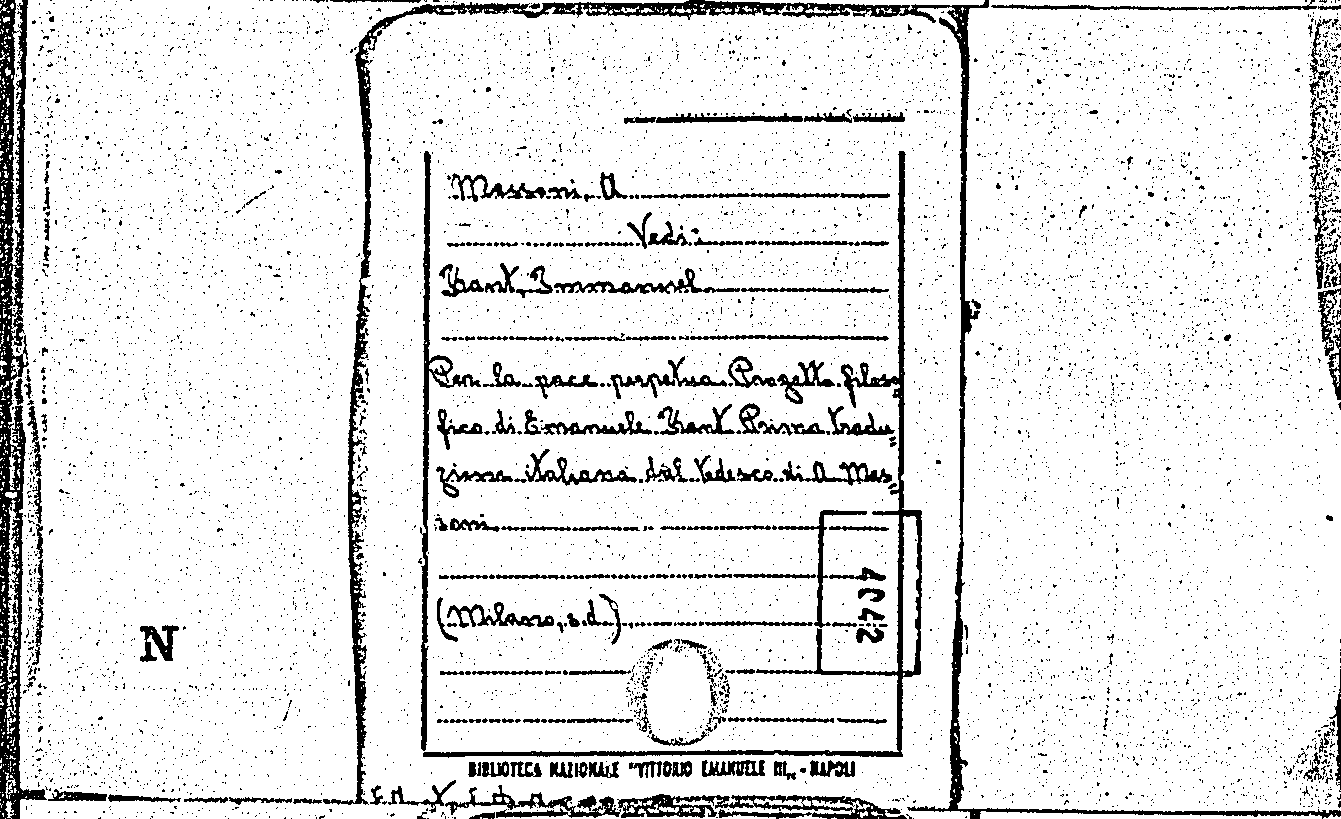 Massoni, A
Vedi:
Kant, Immanuel
Per la pace perpetua Progetto filoso
fico di Emanuele Kant Prima tradu"
zione italiana dal tedesco di A Mas"
soni
(Milano, s.d.)
4042
N
BIBLIOTECA NAZIONALE "VITTORIO EMANUELE III„ - NAPOLI